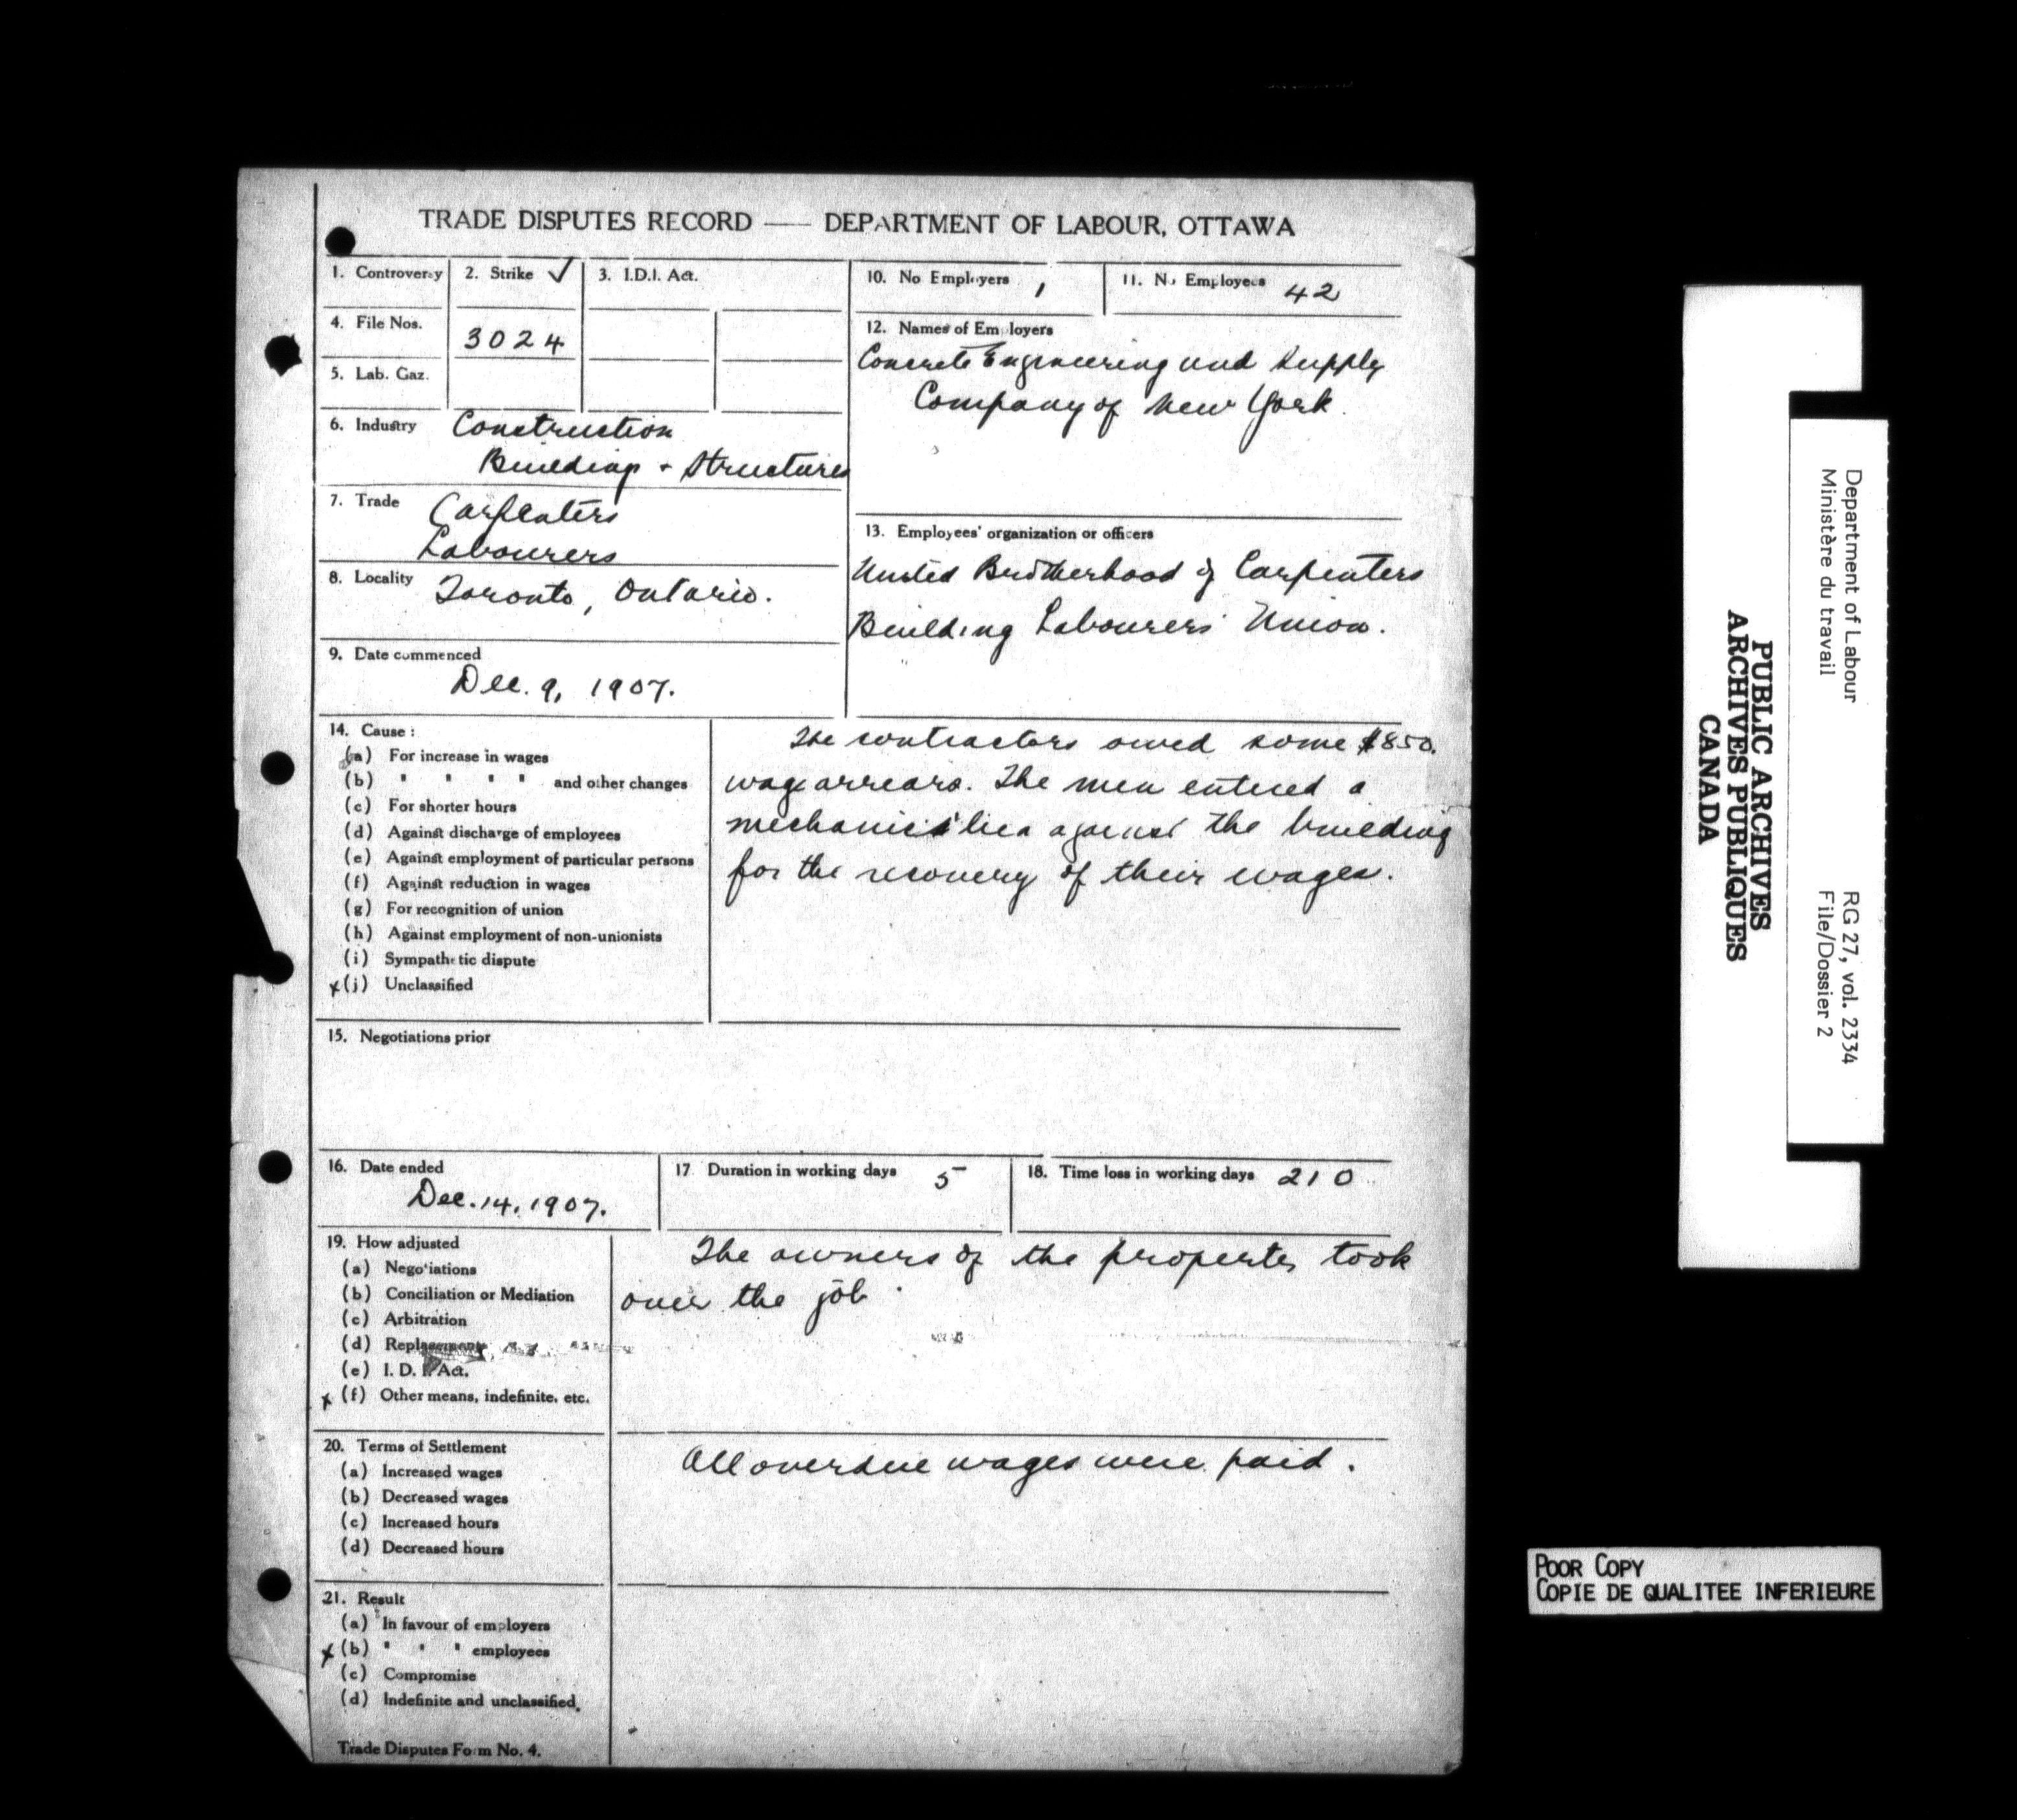 TRADE DISPUTES RECORD — DEPARTMENT OF LABOUR, OTTAWA
1. Controversy
2. Strike ✓
3. I.D.I. Act.
4. File Nos. 3024
5. Lab. Gaz.
6. Industry Construction
Building + Structures
7. Trade Carpenters
Labourers
8. Locality Toronto, Ontario.
9. Date commenced
Dec. 9, 1907.
10. No Employers 1
11. No Employees 42
12. Names of Employers
Concrete Engineering and Supply
Company of New York
13. Employees' organization or officers
United Brotherhood of Carpenters
Building Labourers' Union.
14. Cause :
(a) For increase in wages
(b) " " " " and other changes
(c) For shorter hours
(d) Against discharge of employees
(e) Against employment of particular persons
(f) Against reduction in wages
(g) For recognition of union
(h) Against employment of non-unionists
(i) Sympathetic dispute
x (j) Unclassified
The contractors owed some $850.
wage arrears. The men entered a
mechanics' lien against the building
for the recovery of their wages.
15. Negotiations prior
16. Date ended
Dec. 14, 1907.
17 Duration in working days 5
18. Time loss in working days 210
19. How adjusted
(a) Negotiations
(b) Conciliation or Mediation
(c) Arbitration
(d) Replacement
(e) I. D. I. Act.
x (f) Other means, indefinite, etc.
The owners of the property took
over the job.
20. Terms of Settlement
(a) Increased wages
(b) Decreased wages
(c) Increased hours
(d) Decreased hours
All overdue wages were paid.
21. Result
(a) In favour of employers
x (b) " " " employees
(c) Compromise
(d) Indefinite and unclassified.
Trade Disputes Form No. 4.
Department of Labour
Ministère du travail
RG 27, vol. 2334
File/Dossier 2
PUBLIC ARCHIVES
ARCHIVES PUBLIQUES
CANADA
POOR COPY
COPIE DE QUALITEE INFERIEURE